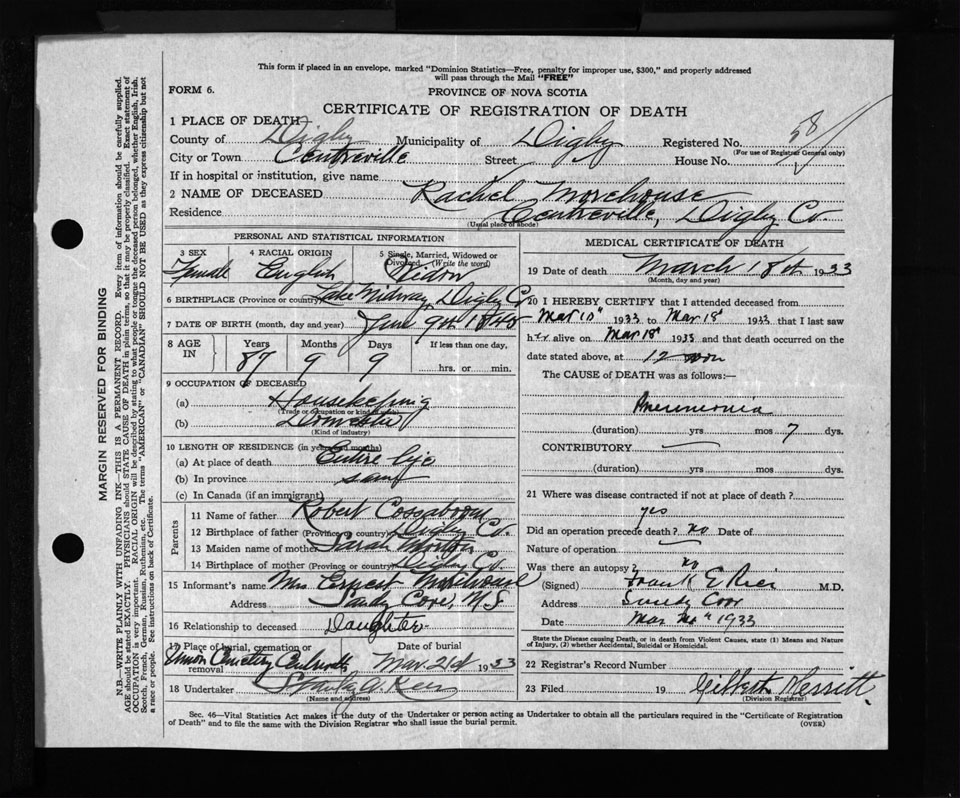 This form if placed in an envelope, marked "Dominion Statistics—Free, penalty for improper use, $300," and properly addressed
will pass through the Mail "FREE"
FORM 6.
PROVINCE OF NOVA SCOTIA
CERTIFICATE OF REGISTRATION OF DEATH
1 PLACE OF DEATH
County of Digby Municipality of Digby Registered No. 58
(For use of Registrar General only)
City or Town Centreville Street House No.
If in hospital or institution, give name
2 NAME OF DECEASED Rachel Morehouse
Residence Centreville, Digby Co
(Usual place of abode)
PERSONAL AND STATISTICAL INFORMATION
3 SEX Female
4 RACIAL ORIGIN English
5 Single, Married, Widowed or
Divorced (Write the word)
6 BIRTHPLACE (Province or country) Lake Midway, Digby Co
7 DATE OF BIRTH (month, day and year) June 9th
8 AGE IN
Years Months Days If less than one day,
87 9 9 hrs. or min.
9 OCCUPATION OF DECEASED
(a) Housekeeping
(Trade or occupation or kind of work)
(b) Domestic
(Kind of industry)
10 LENGTH OF RESIDENCE (in years and months)
(a) At place of death Entire life
(b) In province same
(c) In Canada (if an immigrant)
Parents
11 Name of father Robert Cossaboom
12 Birthplace of father (Province or country) Digby Co.
13 Maiden name of mother Sarah
14 Birthplace of mother (Province or country) Digby Co.
15 Informant's name Mrs Ernest Morehouse
Address Sandy Cove, N.S
16 Relationship to deceased Daughter
17 Place of burial, cremation or removal Date of burial
Union Cemetery Centreville Mar. 21st 1933
18 Undertaker
(Name and address)
MEDICAL CERTIFICATE OF DEATH
19 Date of death March 18th 1933
(Month, day and year)
20 I HEREBY CERTIFY that I attended deceased from
Mar 10" 1933 to Mar 18" 1933 that I last saw
her alive on Mar 18" 1933 and that death occurred on the
date stated above, at 12 noon
The CAUSE OF DEATH was as follows:—
Pneumonia
(duration) yrs mos 7 dys.
CONTRIBUTORY
(duration) yrs mos dys.
21 Where was disease contracted if not at place of death?
yes
Did an operation precede death? no Date of
Nature of operation
Was there an autopsy? no
(Signed) Frank E Rice M.D.
Address Sandy Cove
Date Mar 1933
State the Disease causing Death, or in death from Violent Causes, state (1) Means and Nature
of Injury, (2) whether Accidental, Suicidal or Homicidal.
22 Registrar's Record Number
23 Filed 19 Gilbert Merritt
(Division Registrar)
Sec. 46—Vital Statistics Act makes it the duty of the Undertaker or person acting as Undertaker to obtain all the particulars required in the "Certificate of Registration
of Death" and to file the same with the Division Registrar who shall issue the burial permit.
(OVER)
MARGIN RESERVED FOR BINDING
N.B.—WRITE PLAINLY WITH UNFADING INK—THIS IS A PERMANENT RECORD. Every item of information should be carefully supplied.
AGE should be stated EXACTLY. PHYSICIANS should state CAUSE OF DEATH in plain terms, so that it may be properly classified. Exact statement of
OCCUPATION is very important. RACIAL ORIGIN will be described by stating to what people or tongue the deceased person belonged, whether English, Irish,
Scotch, French, German, Russian, Ruthenian, etc. The terms "AMERICAN" or "CANADIAN" SHOULD NOT BE USED as they express citizenship but not
a race or people. See instructions on back of Certificate.